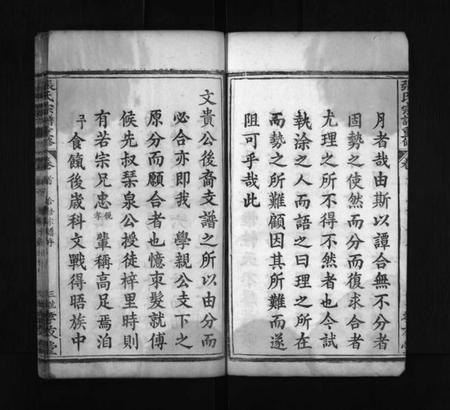 月者哉由斯以譚合無不分者
固勢之使然而分而復求合者
尤理之所不得不然者也今試
執涂之人而語之曰理之所在
而勢之所難顧因其所難而遂
阻可乎哉此
文貴公後裔支譜之所以由分而
必合亦即我 學親公支下之
原分而願合者也憶束髮就傅
候先叔琹泉公授徒梓里時則
有若宗兄忠 輩稱高足焉洎
子食餼後歲科文戰得晤族中
張氏宗譜